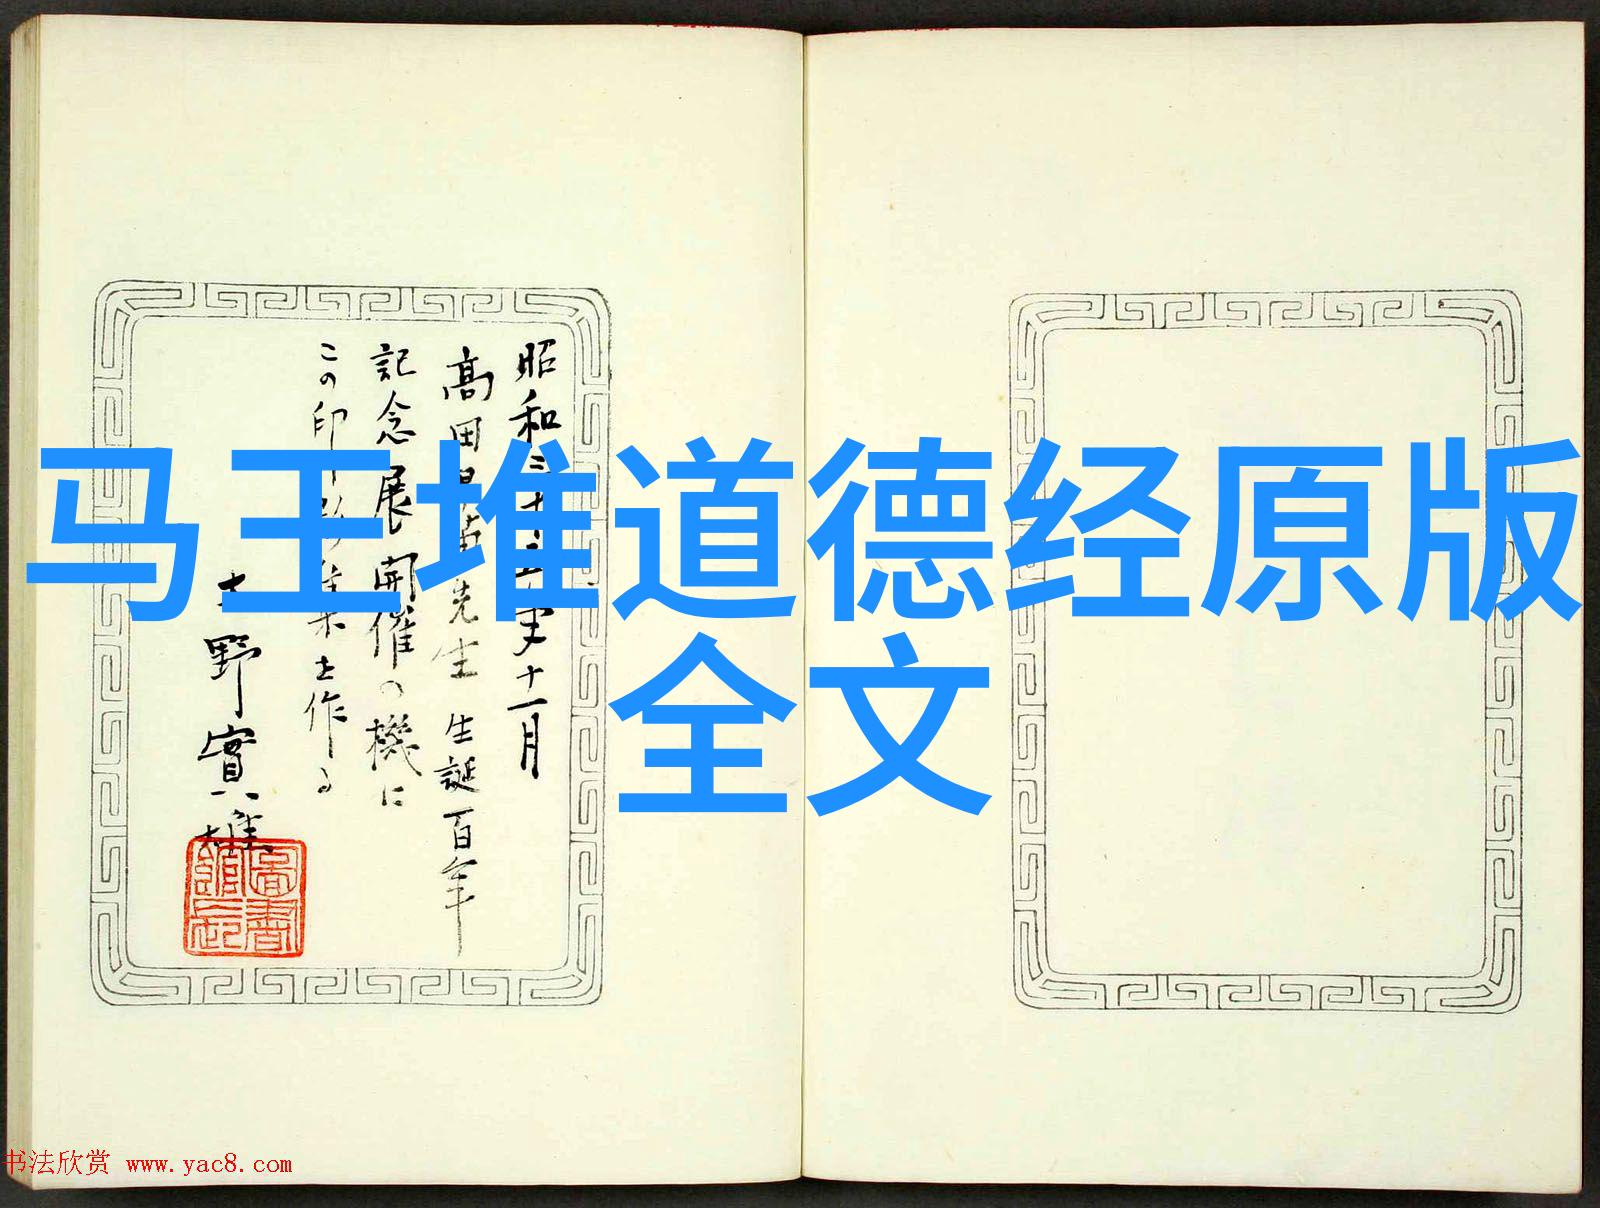 马王堆道德经原版
全文
昭和三十五年十一月
高田 先生 生誕百年
記念展開催の機に
この印 集を作る
大野實雄
圖書館長
书法欣赏 www.yac8.com